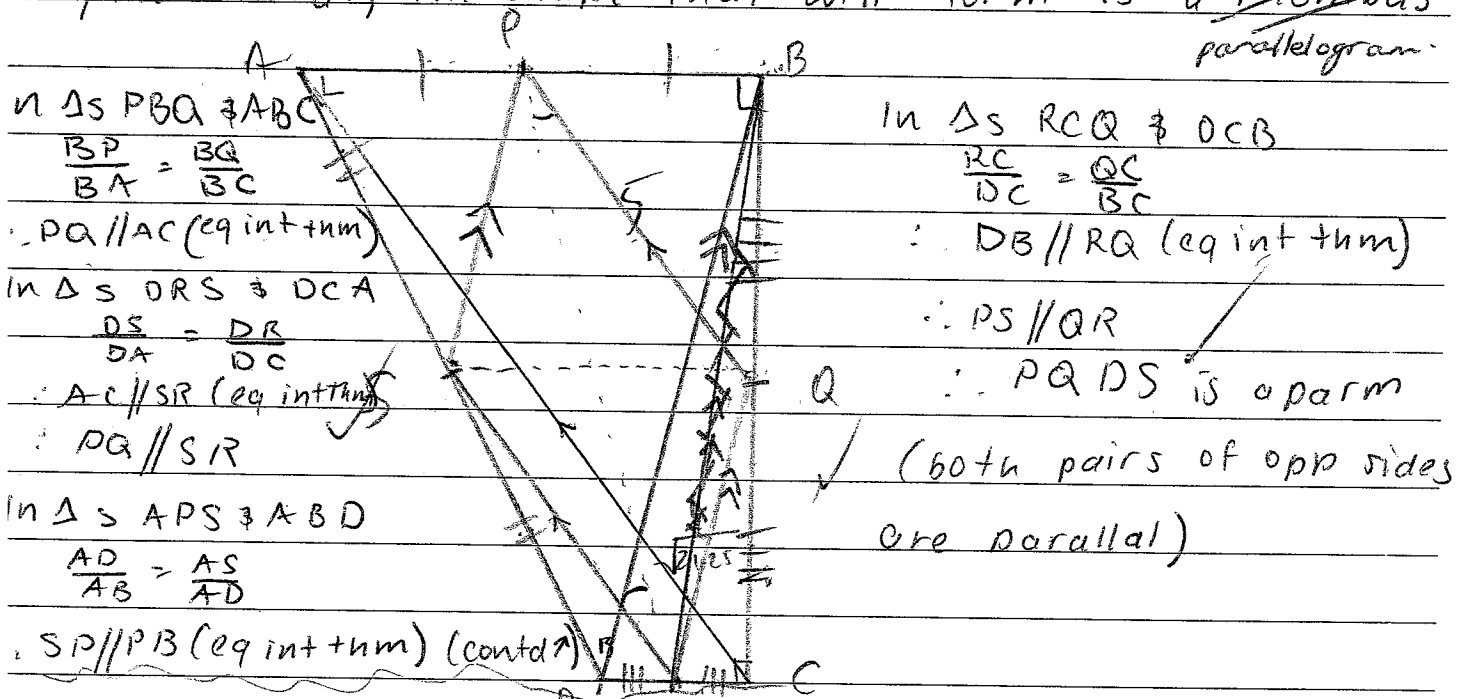 that will form is a rhombus
parallelogram.
P
A
B
In Δs PBQ & ABC
BP/BA = BQ/BC
∴ PQ//AC (eq int thm)
In Δs DRS & DCA
DS/DA = DR/DC
∴ AC//SR (eq int thm)
∴ PQ//SR
In Δs APS & ABD
AD/AB = AS/AD
∴ SP//PB (eq int thm) (contd↗)
In Δs RCQ & DCB
RC/DC = QC/BC
∴ DB//RQ (eq int thm)
∴ PS//QR
∴ PQDS is a parm
(both pairs of opp sides
are parallal)
S
Q
C